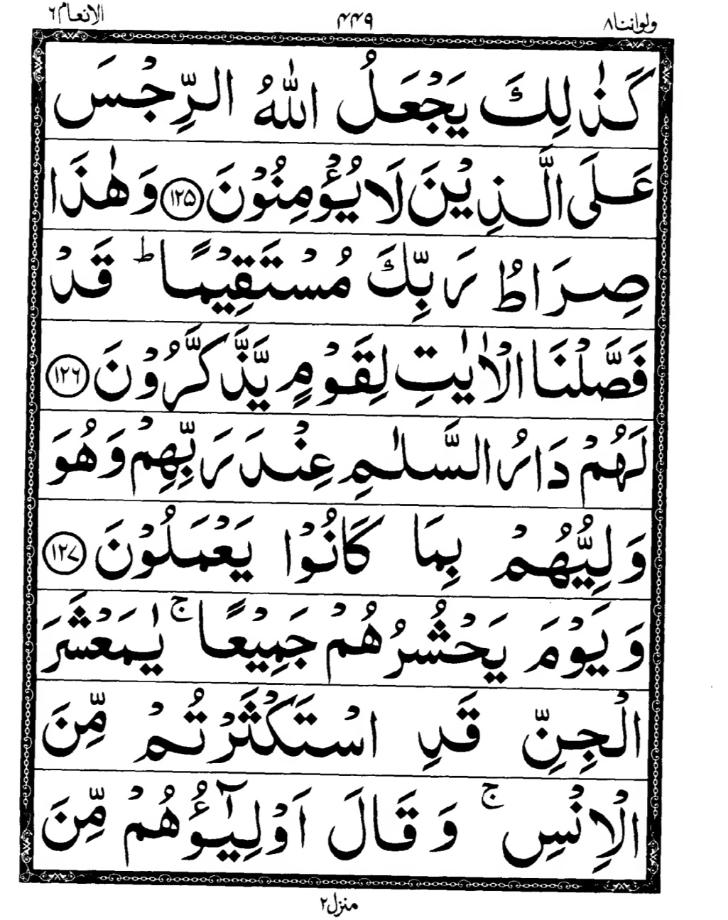 ولواننا ۸ ۴۴۹ الانعام ۶
كَذٰلِكَ يَجْعَلُ اللّٰهُ الرِّجْسَ
عَلَى الَّذِيْنَ لَا يُؤْمِنُوْنَ ﴿۱۲۵﴾ وَهٰذَا
صِرَاطُ رَبِّكَ مُسْتَقِيْمًا ؕ قَدْ
فَصَّلْنَا الْاٰيٰتِ لِقَوْمٍ يَّذَّكَّرُوْنَ ﴿۱۲۶﴾
لَهُمْ دَارُ السَّلٰمِ عِنْدَ رَبِّهِمْ وَهُوَ
وَلِيُّهُمْ بِمَا كَانُوْا يَعْمَلُوْنَ ﴿۱۲۷﴾
وَيَوْمَ يَحْشُرُهُمْ جَمِيْعًا ۚ يٰمَعْشَرَ
الْجِنِّ قَدِ اسْتَكْثَرْتُمْ مِّنَ
الْاِنْسِ ۚ وَقَالَ اَوْلِيٰٓؤُهُمْ مِّنَ
منزل ۲